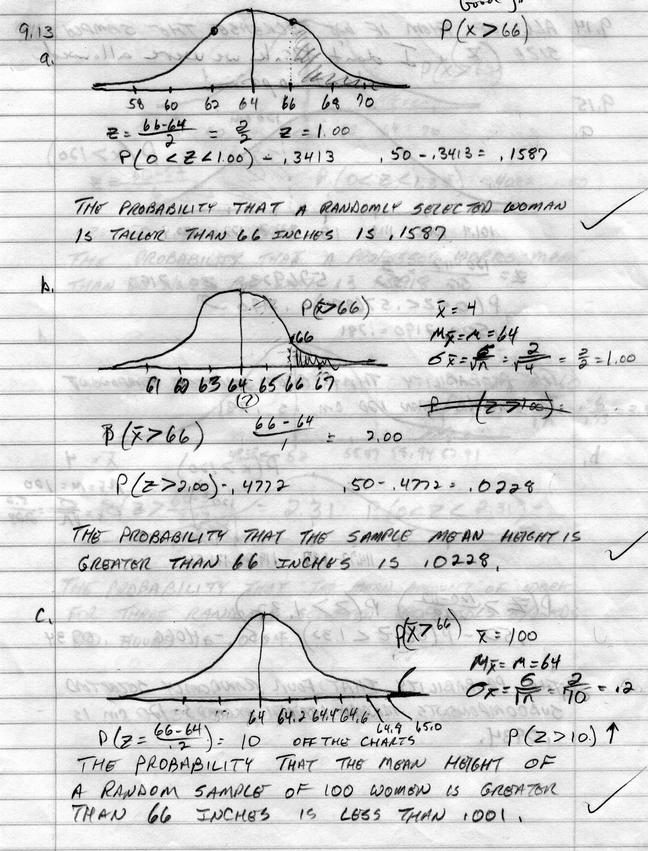 9.13
a.
P(x > 66)
58 60 62 64 66 68 70
z = 66-64/2 = 2/2 z = 1.00
P(0 < z < 1.00) - .3413 .50 - .3413 = .1587
THE PROBABILITY THAT A RANDOMLY SELECTED WOMAN
IS TALLER THAN 66 INCHES IS .1587
b.
P(x̄>66)
66
x̄ = 4
Mx̄ = M = 64
σx̄ = σ/√n = 2/√4 = 2/2 = 1.00
61 62 63 64 65 66 67
(?)
P(x̄ > 66) 66-64/1 = 2.00
P(z > 2.00) - .4772 .50 - .4772 = .0228
THE PROBABILITY THAT THE SAMPLE MEAN HEIGHT IS
GREATER THAN 66 INCHES IS .0228.
c.
P(x̄ > 66) x̄ = 100
Mx̄ = M = 64
σx̄ = σ/√n = 2/10 = .2
64 64.2 64.4 64.6 64.9 65.0
P(z = 66-64/.2) = 10 OFF THE CHARTS P(z > 10) ↑
THE PROBABILITY THAT THE MEAN HEIGHT OF
A RANDOM SAMPLE OF 100 WOMEN IS GREATER
THAN 66 INCHES IS LESS THAN .001.